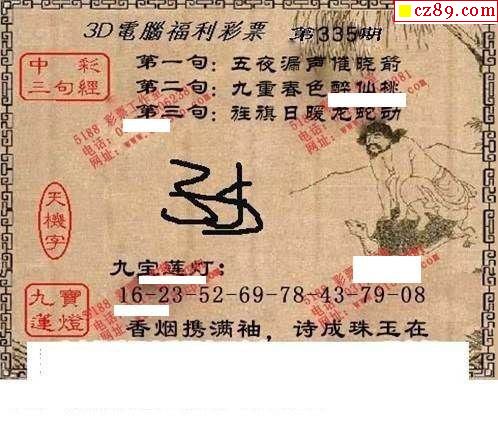 cz89.com
3D電腦福利彩票 第335期
中彩
三句經
第一句：五夜漏声催晓箭
第二句：九重春色醉仙桃
第三句：旌旗日暖龙蛇动
5188 彩票工作
电话：
网址：www.
天機字
九宝莲灯：
九寶
蓮燈
16-23-52-69-78-43-79-08
香烟携满袖，诗成珠玉在